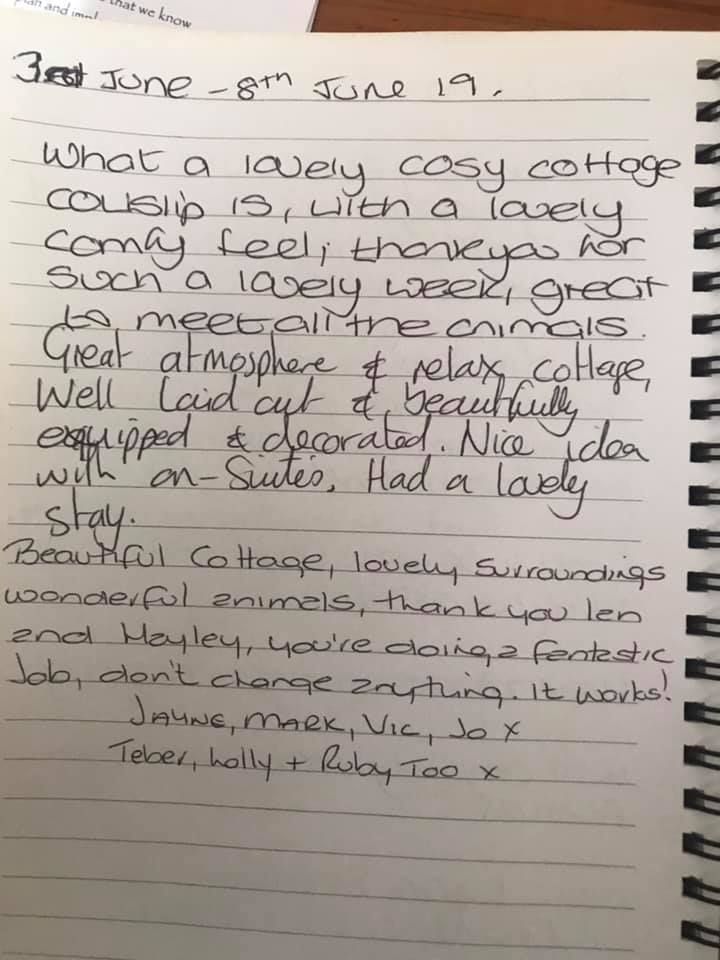 that we know
plan and impl
3rd June - 8th June 19.
What a lovely cosy cottage
couslip is, with a lovely
comfy feel, thankyou for
such a lovely week, great
to meet all the animals.
Great atmosphere & relax cottage,
Well laid out & beautifully
equipped & decorated. Nice idea
with on-Suites, Had a lovely
stay.
Beautiful Cottage, lovely surroundings
wonderful animals, thank you len
and Hayley, you're doing a fantastic
Job, don't change anything. It works!
JAYNE, MARK, VIC, Jo x
Teber, holly + Ruby Too x